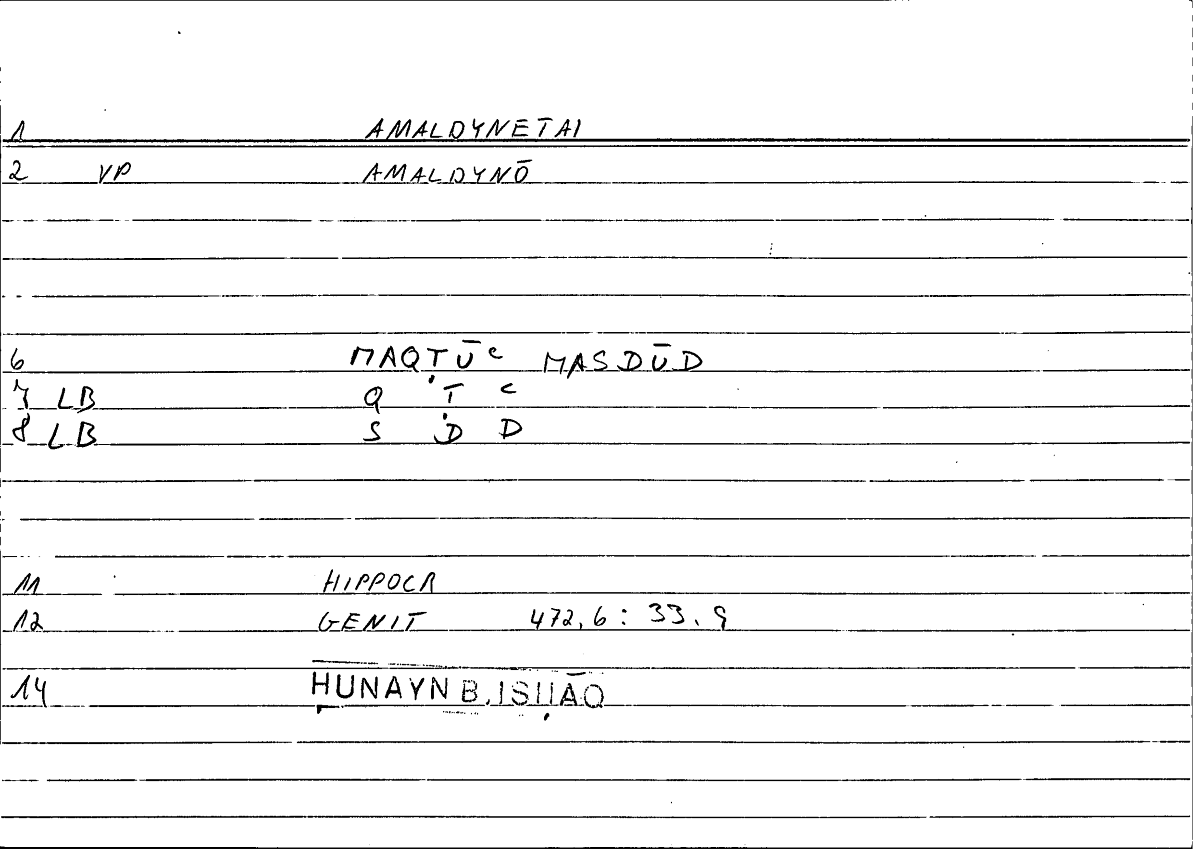 1 AMALDYNETAI
2 VP AMALDYNŌ
6 MAQṬŪʿ MASDŪD
7 LB Q Ṭ ʿ
8 LB S D D
11 HIPPOCR
12 GENIT 472,6 : 33.9
14 ḤUNAYN B. ISḤĀQ